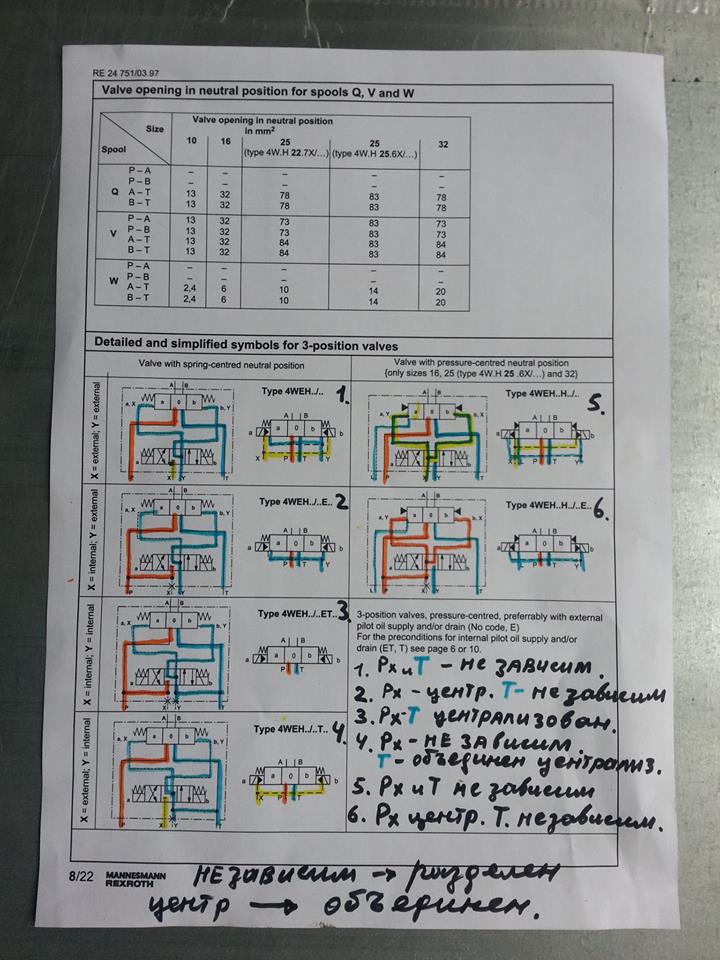 RE 24 751/03.97
Valve opening in neutral position for spools Q, V and W
Valve opening in neutral position
in mm²
Size 10 16 25 25 32
(type 4W.H 22.7X/...) (type 4W.H 25.6X/...)
Spool
P – A – – – – –
P – B – – – – –
Q A – T 13 32 78 83 78
B – T 13 32 78 83 78
P – A 13 32 73 83 73
V P – B 13 32 73 83 73
A – T 13 32 84 83 84
B – T 13 32 84 83 84
P – A – – – – –
W P – B – – – – –
A – T 2,4 6 10 14 20
B – T 2,4 6 10 14 20
Detailed and simplified symbols for 3-position valves
Valve with spring-centred neutral position
Valve with pressure-centred neutral position
{only sizes 16, 25 (type 4W.H 25 .6X/...) and 32}
X = external; Y = external
A B
a, X
a 0 b
b, Y
a b
X Y T
Type 4WEH../.. 1.
A B
a a 0 b b
X P T Y
A B
a, Y
a 0 b
b, X
a b
P X Y T
Type 4WEH..H../.. 5.
A B
a a 0 b b
X P T Y
X = internal; Y = external
A B
a, X
a 0 b
b, Y
a b
P X Y T
Type 4WEH../..E.. 2
A B
a a 0 b b
P T Y
A B
a, Y
a 0 b
b, X
a b
X Y T
Type 4WEH..H../..E.. 6.
A B
a a 0 b b
P T Y
X = internal; Y = internal
A B
a, X
a 0 b
b, Y
a b
P X Y T
Type 4WEH../..ET.. 3.
A B
a a 0 b b
P T
3-position valves, pressure-centred, preferably with external
pilot oil supply and/or drain (No code, E)
For the preconditions for internal pilot oil supply and/or
drain (ET, T) see page 6 or 10.
X = external; Y = internal
A B
a, X
a 0 b
b, Y
a b
P X Y T
Type 4WEH../..T.. 4.
A B
a a 0 b b
X P T
1. Px и T – не зависим.
2. Px – центр. T – не зависим
3. Px-T централизован.
4. Px – не зависим.
T – объединен централиз.
5. Px и T не зависим
6. Px центр. T. независим.
8/22 MANNESMANN
REXROTH
независим → разделен
центр → объединен.